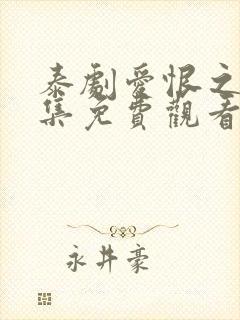 泰劇愛恨之
集免費觀看
永井豪